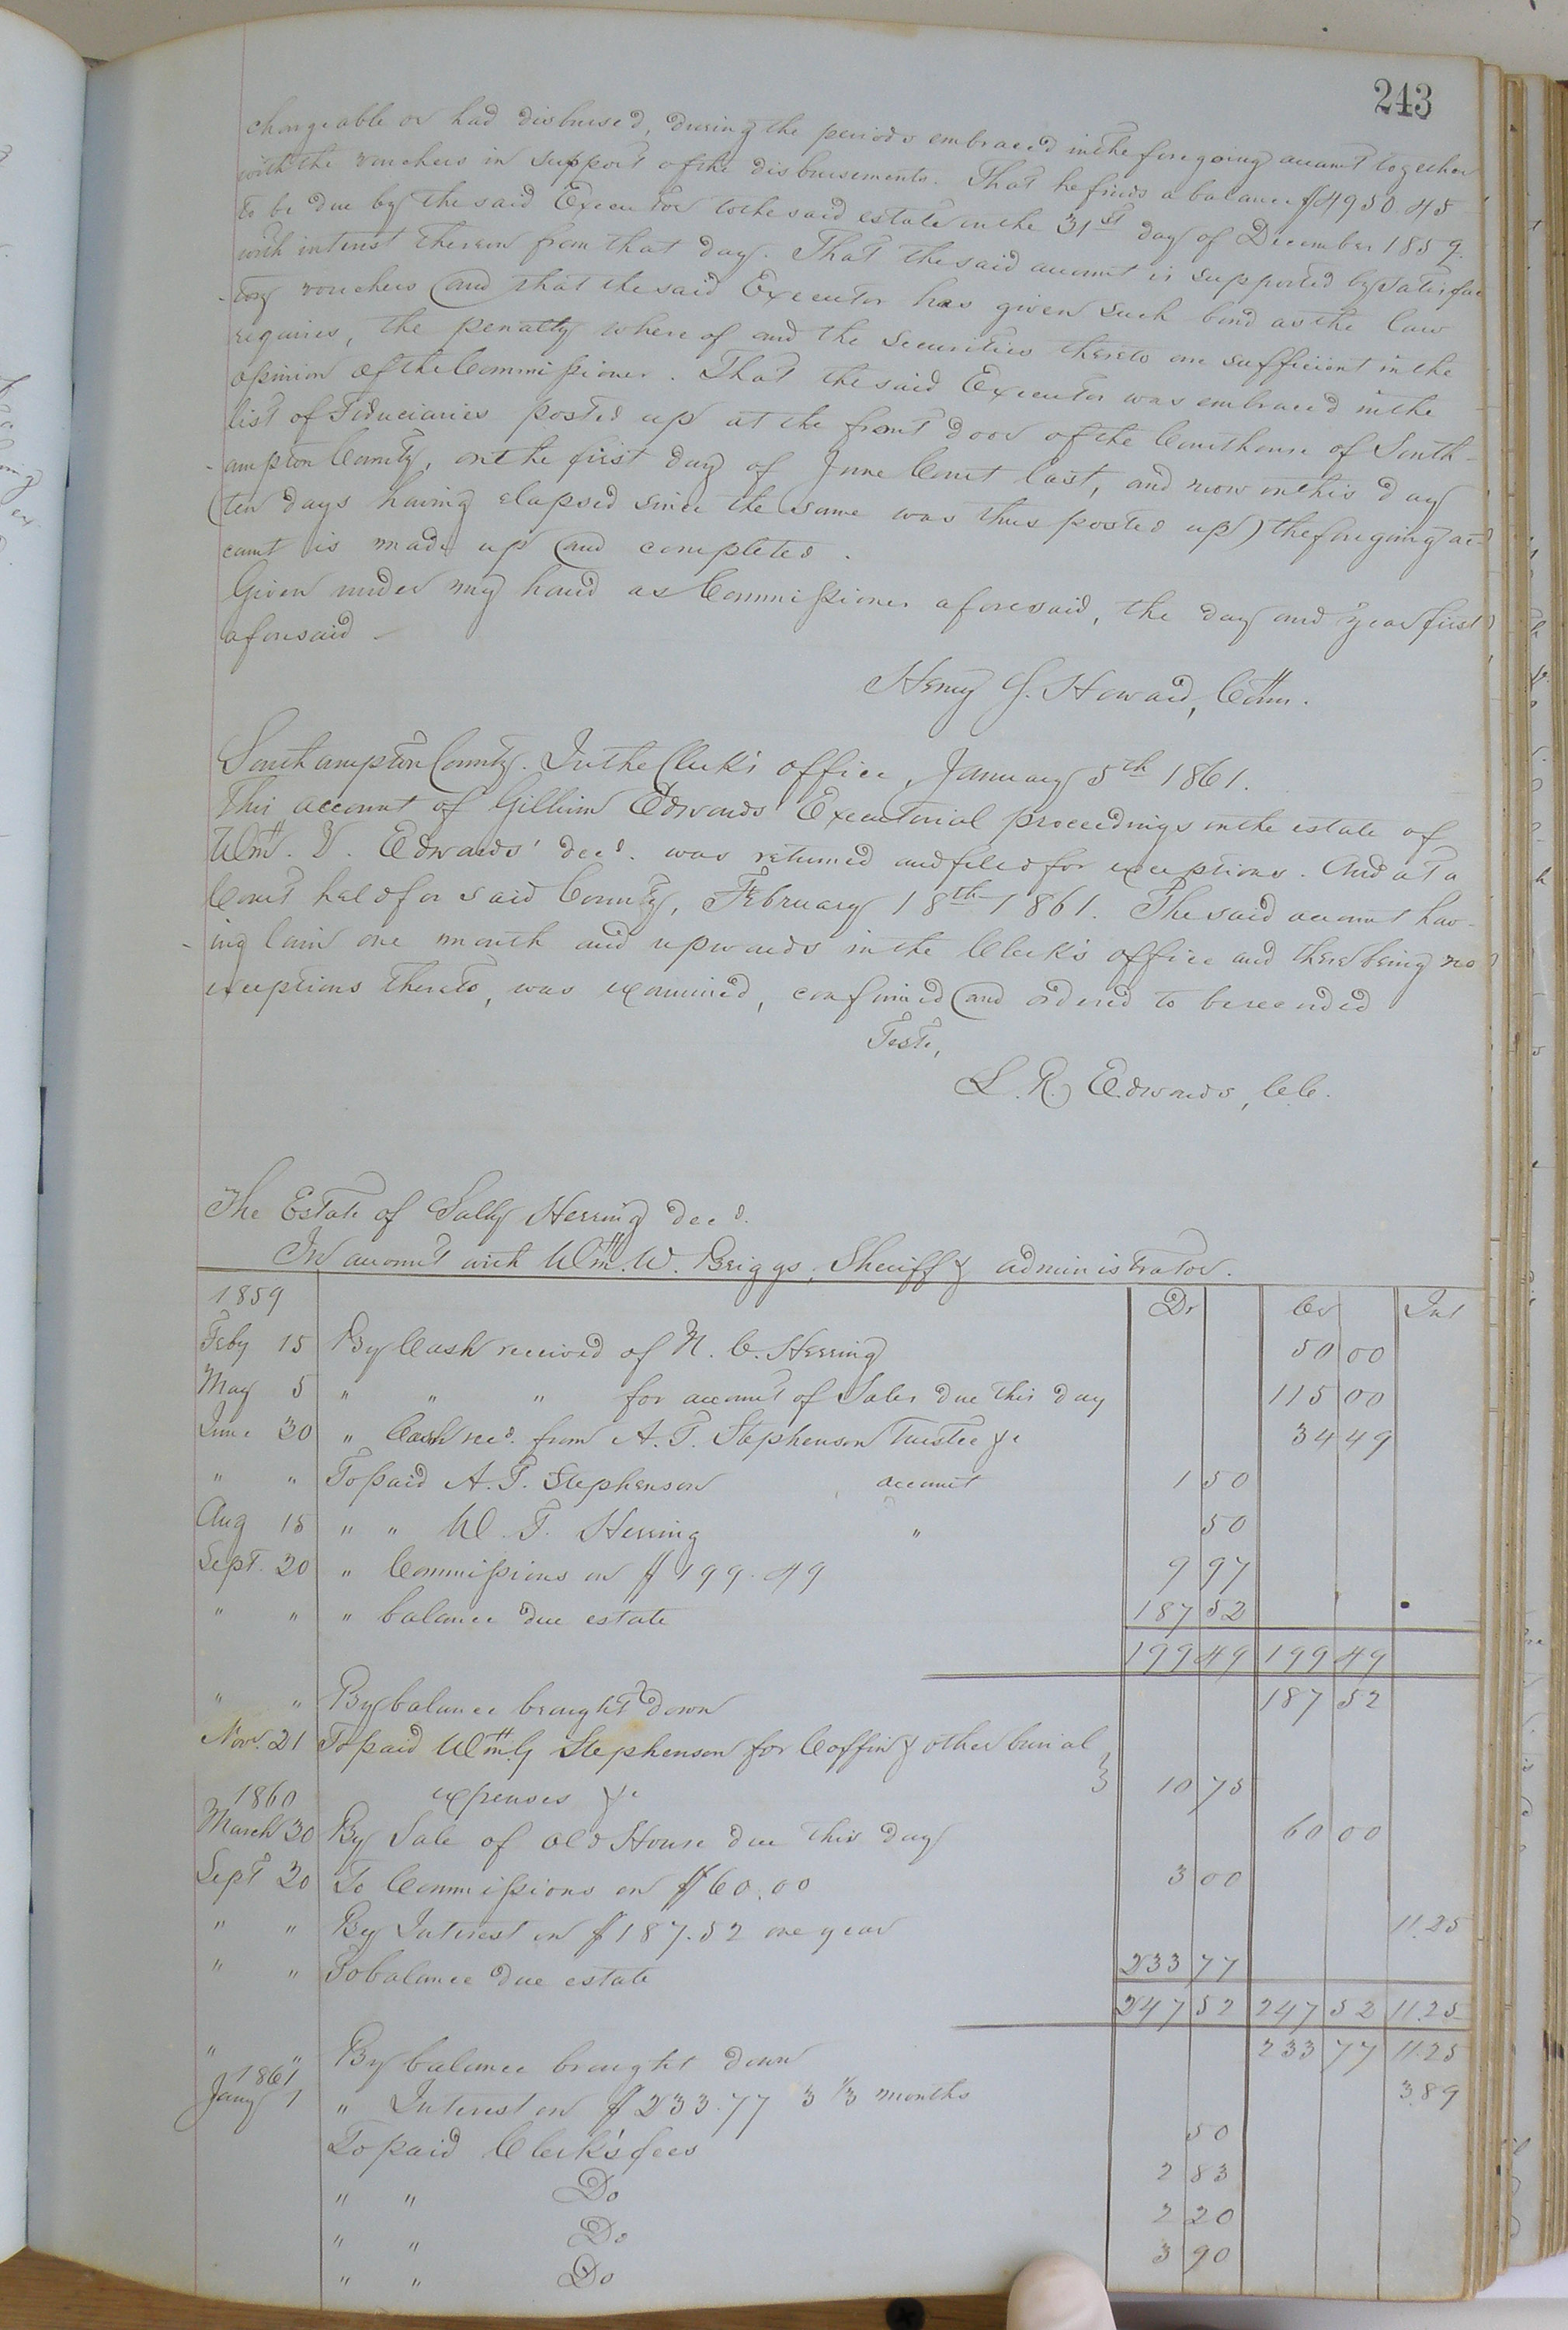 243
chargeable or had disbursed, during the periods embraced in the foregoing account together
with the vouchers in support of the disbursements. That he finds a balance $4950 45
to be due by the said Executor to the said estate on the 31st day of December 1859.
with interest thereon from that day. That the said account is supported by satisfac
-tory vouchers and that the said Executor has given such bond as the law
requires, the penalty where of and the securities thereto are sufficient in the
opinion of the Commissioner. That the said Executor was embraced in the
list of Fiduciaries posted up at the front door of the Courthouse of South-
-ampton County, on the first day of June Court last, and now on this day
(ten days having elapsed since the same was thus posted up) the foregoing ac-
count is made up and completed.
Given under my hand as Commissioner aforesaid, the day and year first
aforesaid
Henry G. Howard, Comr.
Southampton County. In the Clerk's office, January 5th 1861.
This account of Gilliam Edwards' Executorial proceedings on the estate of
Wm. V. Edwards' decd. was returned and filed for exceptions. And at a
Court held for said County, February 18th 1861. The said account hav-
-ing lain one month and upwards in the Clerk's office and there being no
exceptions thereto, was examined, confirmed and ordered to be recorded
Teste,
L. R. Edwards, CC.
The Estate of Sally Herring decd.
In account with Wm. W. Briggs, Sheriff & administrator.
1859 Dr Cr Int
Feby 15 By Cash received of N. C. Herring 50 00
May 5 " " " for account of Sales due this day 115 00
June 30 " Cash recd. from A. T. Stephenson Trustee &c 34 49
" " To paid A. T. Stephenson account 1 50
Aug 15 " " W. T. Herring " 50
Sept. 20 " Commissions on $199.49 9 97
" " " balance due estate 187 52
199 49 199 49
" " By balance brought down 187 52
Nov. 21 To paid Wm. G Stephenson for Coffin & other burial
expenses &c 10 75
1860
March 30 By Sale of old House due this day 60 00
Sept 20 To Commissions on $60.00 3 00
" " By Interest on $187.52 one year 11.25
" " To balance due estate 233 77
247 52 247 52 11.25
" " By balance brought down 233 77 11.25
1861
Jany 1 " Interest on $233.77 3 1/3 months 3.89
To paid Clerk's fees 50
" " Do 2 83
" " Do 2 20
" " Do 3 90